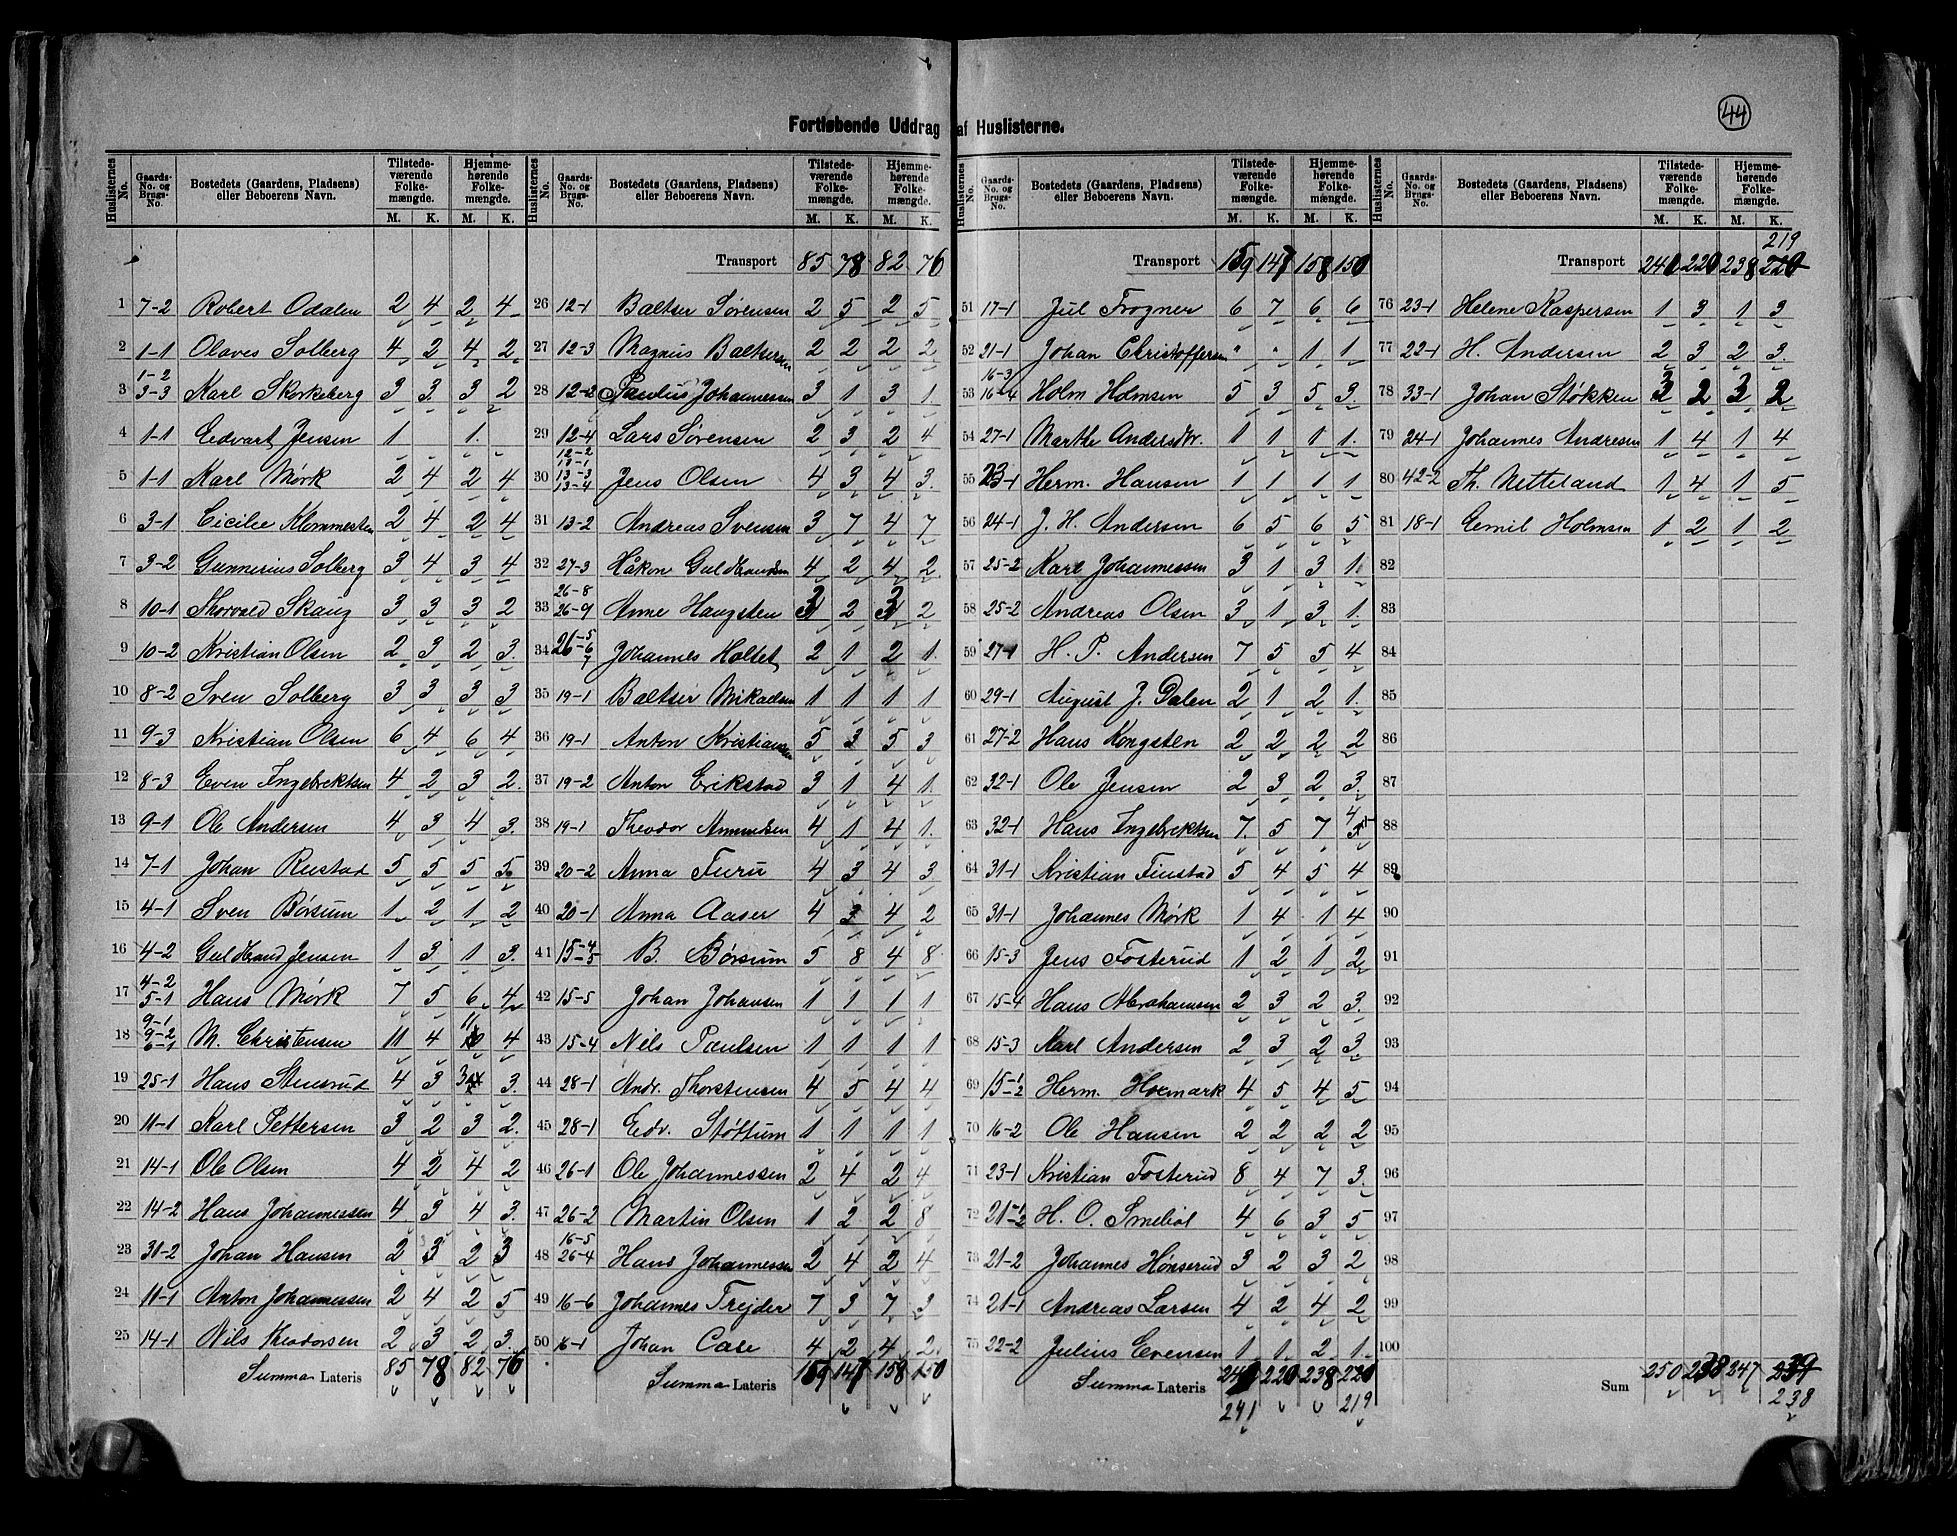 44
Fortløbende Uddrag af Huslisterne.
Huslisternes No. Gaards-No. og Brugs-No. Bostedets (Gaardens, Pladsens) eller Beboerens Navn. Tilstedeværende Folkemængde. M. K. Hjemmehørende Folkemængde. M. K.
1 7-2 Robert Odalen 2 4 2 4
2 1-1 Olaves Solberg 4 2 4 2
3 1-2 3-3 Karl Skorkeberg 3 3 3 2
4 1-1 Edvart Jensen 1 1
5 1-1 Karl Mørk 2 4 2 4
6 3-1 Cicilie Klommesten 2 4 2 4
7 3-2 Gunnerius Solberg 3 4 3 4
8 10-1 Thorvald Skaug 3 3 3 2
9 10-2 Kristian Olsen 2 3 2 3
10 8-2 Sven Solberg 3 3 3 3
11 9-3 Kristian Olsen 6 4 6 4
12 8-3 Even Ingebrektsen 4 2 3 2
13 9-1 Ole Andersen 4 3 4 3
14 7-1 Johan Rustad 5 5 5 5
15 4-1 Sven Børsum 1 2 1 2
16 4-2 Guldbrand Jensen 1 3 1 3
17 4-2 5-1 Hans Mørk 7 5 6 4
18 9-1 9-2 6-1 M. Christensen 11 4 11 4
19 25-1 Hans Stensrud 4 3 3 3
20 11-1 Karl Pettersen 3 2 3 2
21 14-1 Ole Olsen 4 2 4 2
22 14-2 Hans Johannessen 4 3 4 3
23 31-2 Johan Hansen 2 3 2 3
24 11-1 Anton Johannessen 2 4 2 5
25 14-1 Nils Theodorsen 2 3 2 3
Summa Lateris 85 78 82 76
Transport 85 78 82 76
26 12-1 Baltser Sørensen 2 5 2 5
27 12-3 Magnus Baltsersen 2 2 2 2
28 12-2 Paulus Johannessen 3 1 3 1
29 12-4 Lars Sørensen 2 3 2 4
30 12-2 13-1 13-3 13-4 Jens Olsen 4 3 4 3
31 13-2 Andreas Svensen 3 7 4 7
32 27-3 Håkon Guldbrandsen 4 2 4 2
33 26-8 26-9 Anne Haugsten 3 2 3 2
34 26-5 26-6 7 Johannes Holtet 2 1 2 1
35 19-1 Baltser Mikaelsen 1 1 1 1
36 19-1 Anton Kristiansen 5 3 5 3
37 19-2 Anton Erikstad 3 1 4 1
38 19-1 Theodor Amundsen 4 1 4 1
39 20-2 Anna Furu 4 3 4 3
40 20-1 Anna Aaser 4 3 4 2
41 15-4 15-5 B. Børsum 5 8 4 8
42 15-5 Johan Johansen 1 1 1 1
43 15-4 Nils Paulsen 1 1 1 1
44 28-1 Andr. Thorstensen 4 5 4 4
45 28-1 Edv. Støttum 1 1 1 1
46 26-1 Ole Johannessen 2 4 2 4
47 26-2 Martin Olsen 1 2 2 8
48 16-5 26-4 Hans Johannessen 2 4 2 4
49 16-6 Johannes Trejder 7 3 7 3
50 16-1 Johan Case 4 2 4 2
Summa Lateris 159 147 158 150
Transport 159 147 158 150
51 17-1 Jul Frogner 6 7 6 6
52 21-1 Johan Christoffersen " " 1 1
53 16-3 16-4 Holm Holmsen 5 3 5 3
54 27-1 Marthe Andersdtr. 1 1 1 1
55 23-1 Herm. Hansen 1 1 1 1
56 24-1 J. H. Andersen 6 5 6 5
57 25-2 Karl Johannessen 3 1 3 1
58 25-2 Andreas Olsen 3 1 3 1
59 27-1 H. P. Andersen 7 5 5 4
60 29-1 August J. Dalen 2 1 2 1
61 27-2 Hans Kongsten 2 2 2 2
62 32-1 Ole Jensen 2 3 2 3
63 32-1 Hans Ingebrektsen 7 5 7 4
64 31-1 Kristian Finstad 5 4 5 4
65 31-1 Johannes Mørk 1 4 1 4
66 15-3 Jens Fosterud 1 2 1 2
67 15-4 Hans Abrahamsen 2 3 2 3
68 15-3 Karl Andersen 2 3 2 3
69 15-1 2 Herm. Hoxmark 4 5 4 5
70 16-2 Ole Hansen 2 2 2 2
71 23-1 Kristian Fosterud 8 4 7 3
72 21-1 2 H. O. Smebøl 4 6 3 5
73 21-2 Johannes Hønserud 3 2 3 2
74 21-1 Andreas Larsen 4 2 4 2
75 22-2 Julius Evensen 1 1 2 1
Summa Lateris 220 238 220
241 219
219
Transport 240 220 238 220
76 23-1 Helene Kaspersen 1 3 1 3
77 22-1 H. Andersen 2 3 2 3
78 33-1 Johan Støkken 3 2 3 2
79 24-1 Johannes Andresen 1 4 1 4
80 42-2 Th. Netteland 1 4 1 5
81 18-1 Emil Holmsen 1 2 1 2
82
83
84
85
86
87
88
89
90
91
92
93
94
95
96
97
98
99
100
Sum 250 238 247 239
238